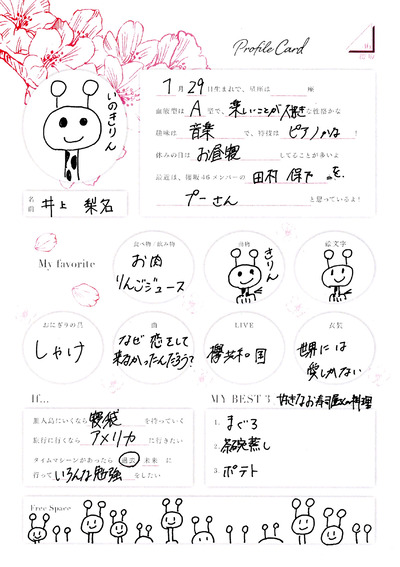 Profile Card
いのきりん
名前 井上 梨名
1月29日生まれで、星座は 座
血液型は A 型で、楽しいことが大好きな性格かな
趣味は 音楽 で、特技は ピアノかな!
休みの日は お昼寝 してることが多いよ
最近は、櫻坂46メンバーの 田村 保乃 を、
プーさん と思っているよ!
My favorite
食べ物/飲み物
お肉
りんごジュース
動物
きりん
絵文字
おにぎりの具
しゃけ
曲
なぜ 恋をして
来なかったんだろう?
LIVE
欅共和国
衣装
世界には
愛しかない
If...
無人島にいくなら 寝袋 を持っていく
旅行に行くなら アメリカ に行きたい
タイムマシーンがあったら 過去 未来 に
行って いろんな勉強 をしたい
MY BEST 3 好きなお寿司屋さんの料理
1. まぐろ
2. 茶碗蒸し
3. ポテト
Free Space